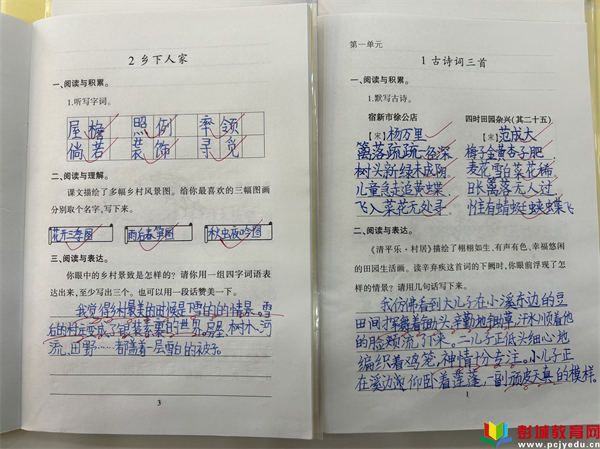 2 乡下人家
一、阅读与积累。
1.听写字词。
屋檐 照例 率领
倘若 装饰 寻觅
二、阅读与理解。
课文描绘了多幅乡村风景图。给你最喜欢的三幅图画
分别取个名字,写下来。
花开三季图 雨后春笋图 秋虫夜吟图
三、阅读与表达。
你眼中的乡村景致是怎样的?请你用一组四字词语表
达出来,至少写出三个。也可以用一段话赞美一下。
我觉得乡村最美的时候是雪的的情景。雪
后的村庄变成了银装素裹的世界。房屋、树木、河
流、田野……都盖着一层雪白的被子。
3
第一单元
1 古诗词三首
一、阅读与积累。
1.默写古诗。
宿新市徐公店 四时田园杂兴(其二十五)
[宋]杨万里 [宋]范成大
篱落疏疏一径深, 梅子金黄杏子肥,
树头新绿未成阴。 麦花雪白菜花稀。
儿童急走追黄蝶, 日长篱落无人过,
飞入菜花无处寻。 惟有蜻蜓蛱蝶飞
二、阅读与表达。
《清平乐·村居》描绘了栩栩如生、有声有色、幸福悠闲
的田园生活画。读辛弃疾这首词的下阕时,你眼前浮现了怎
样的情景?请用几句话写下来。
我仿佛看到大儿子在小溪东边的豆
田间挥舞着锄头,辛勤地锄草,汗水顺着他
的脸颊流了下来。二儿子正低头细心地
编织着鸡笼,神情十分专注。小儿子正
在溪边
仰卧着
莲蓬,一副顽皮天真的模样。
1
彭城教育网
www.pcjyedu.cn